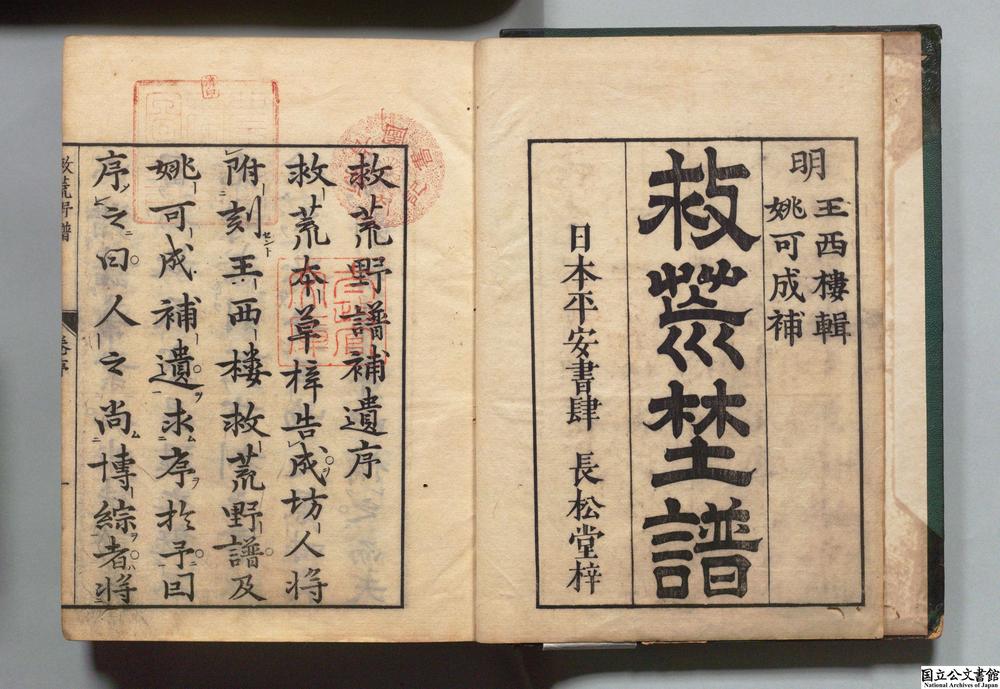 明
王西樓輯
姚可成補
救荒埜譜
日本平安書肆 長松堂梓
救荒野譜補遺序
救荒本草梓告成坊人將
附刻王西樓救荒野譜及
姚可成補遺求序於予囙
序之曰人之尚博綜者將
救荒野譜
国立公文書館
National Archives of Japan